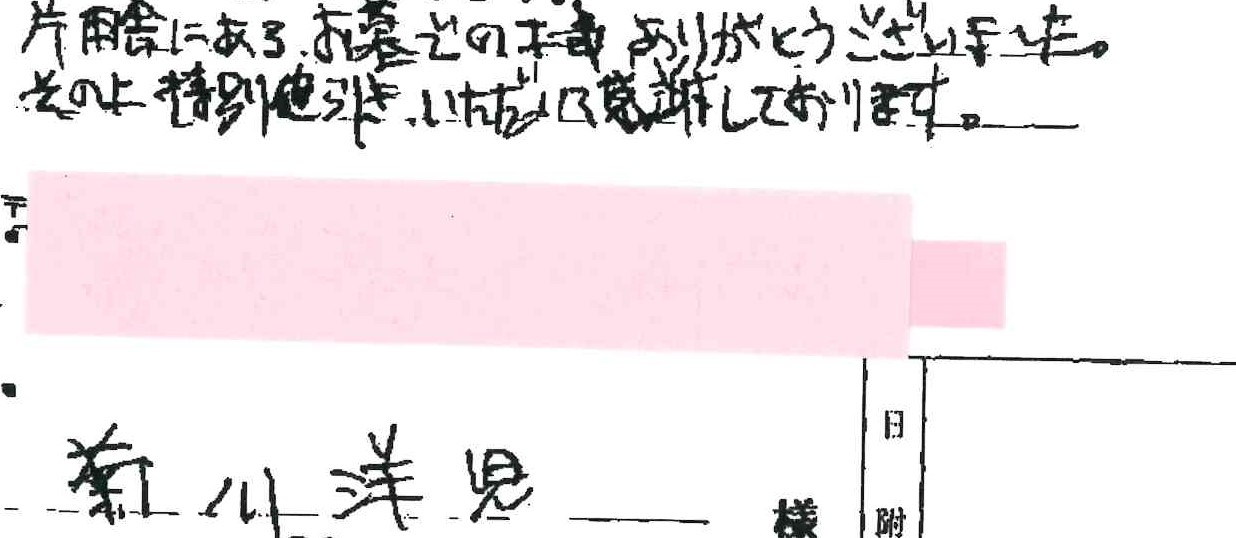 片田舎にあるお墓での工事ありがとうございました。
その上特別値引きいただいて感謝しております。
〒
日
菊川洋児
様
附